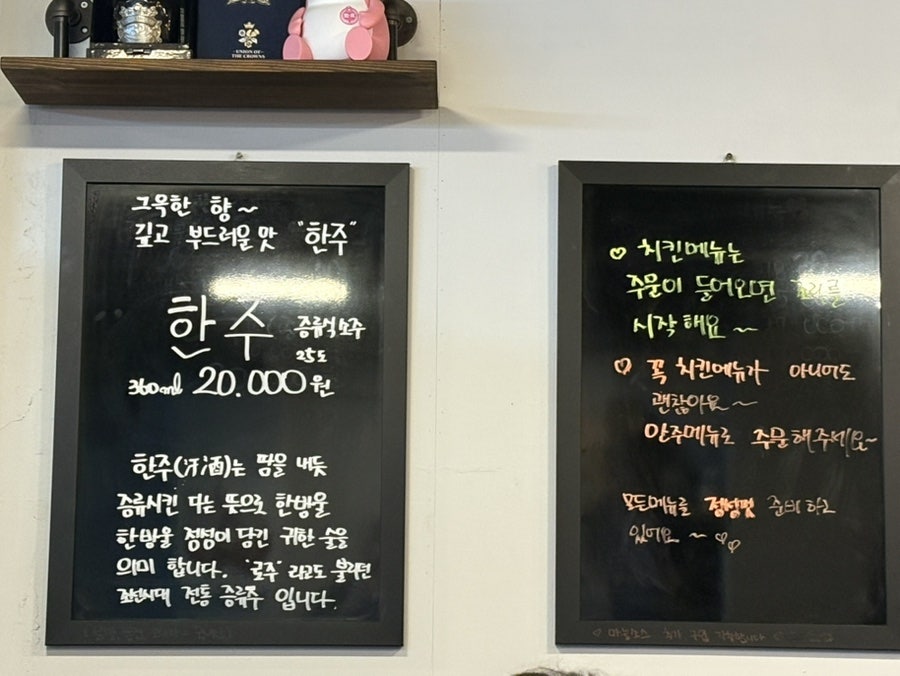 UNION OF
THE CROWNS
그윽한 향~
깊고 부드러운 맛 "한주"
한주 증류식 소주
25도
360ml 20.000원
한주(汗酒)는 땀을 내듯
증류시킨 다는 뜻으로 한방울
한방울 정성이 담긴 귀한 술을
의미 합니다. '로주' 라고도 불리던
조선시대 전통 증류주 입니다.
♡ 치킨메뉴는
주문이 들어오면 조리를
시작해요~
♡ 꼭 치킨메뉴가 아니어도
괜찮아요~
안주메뉴로 주문해주세요~
모든메뉴를 정성껏 준비하고
있어요~ ♡♡